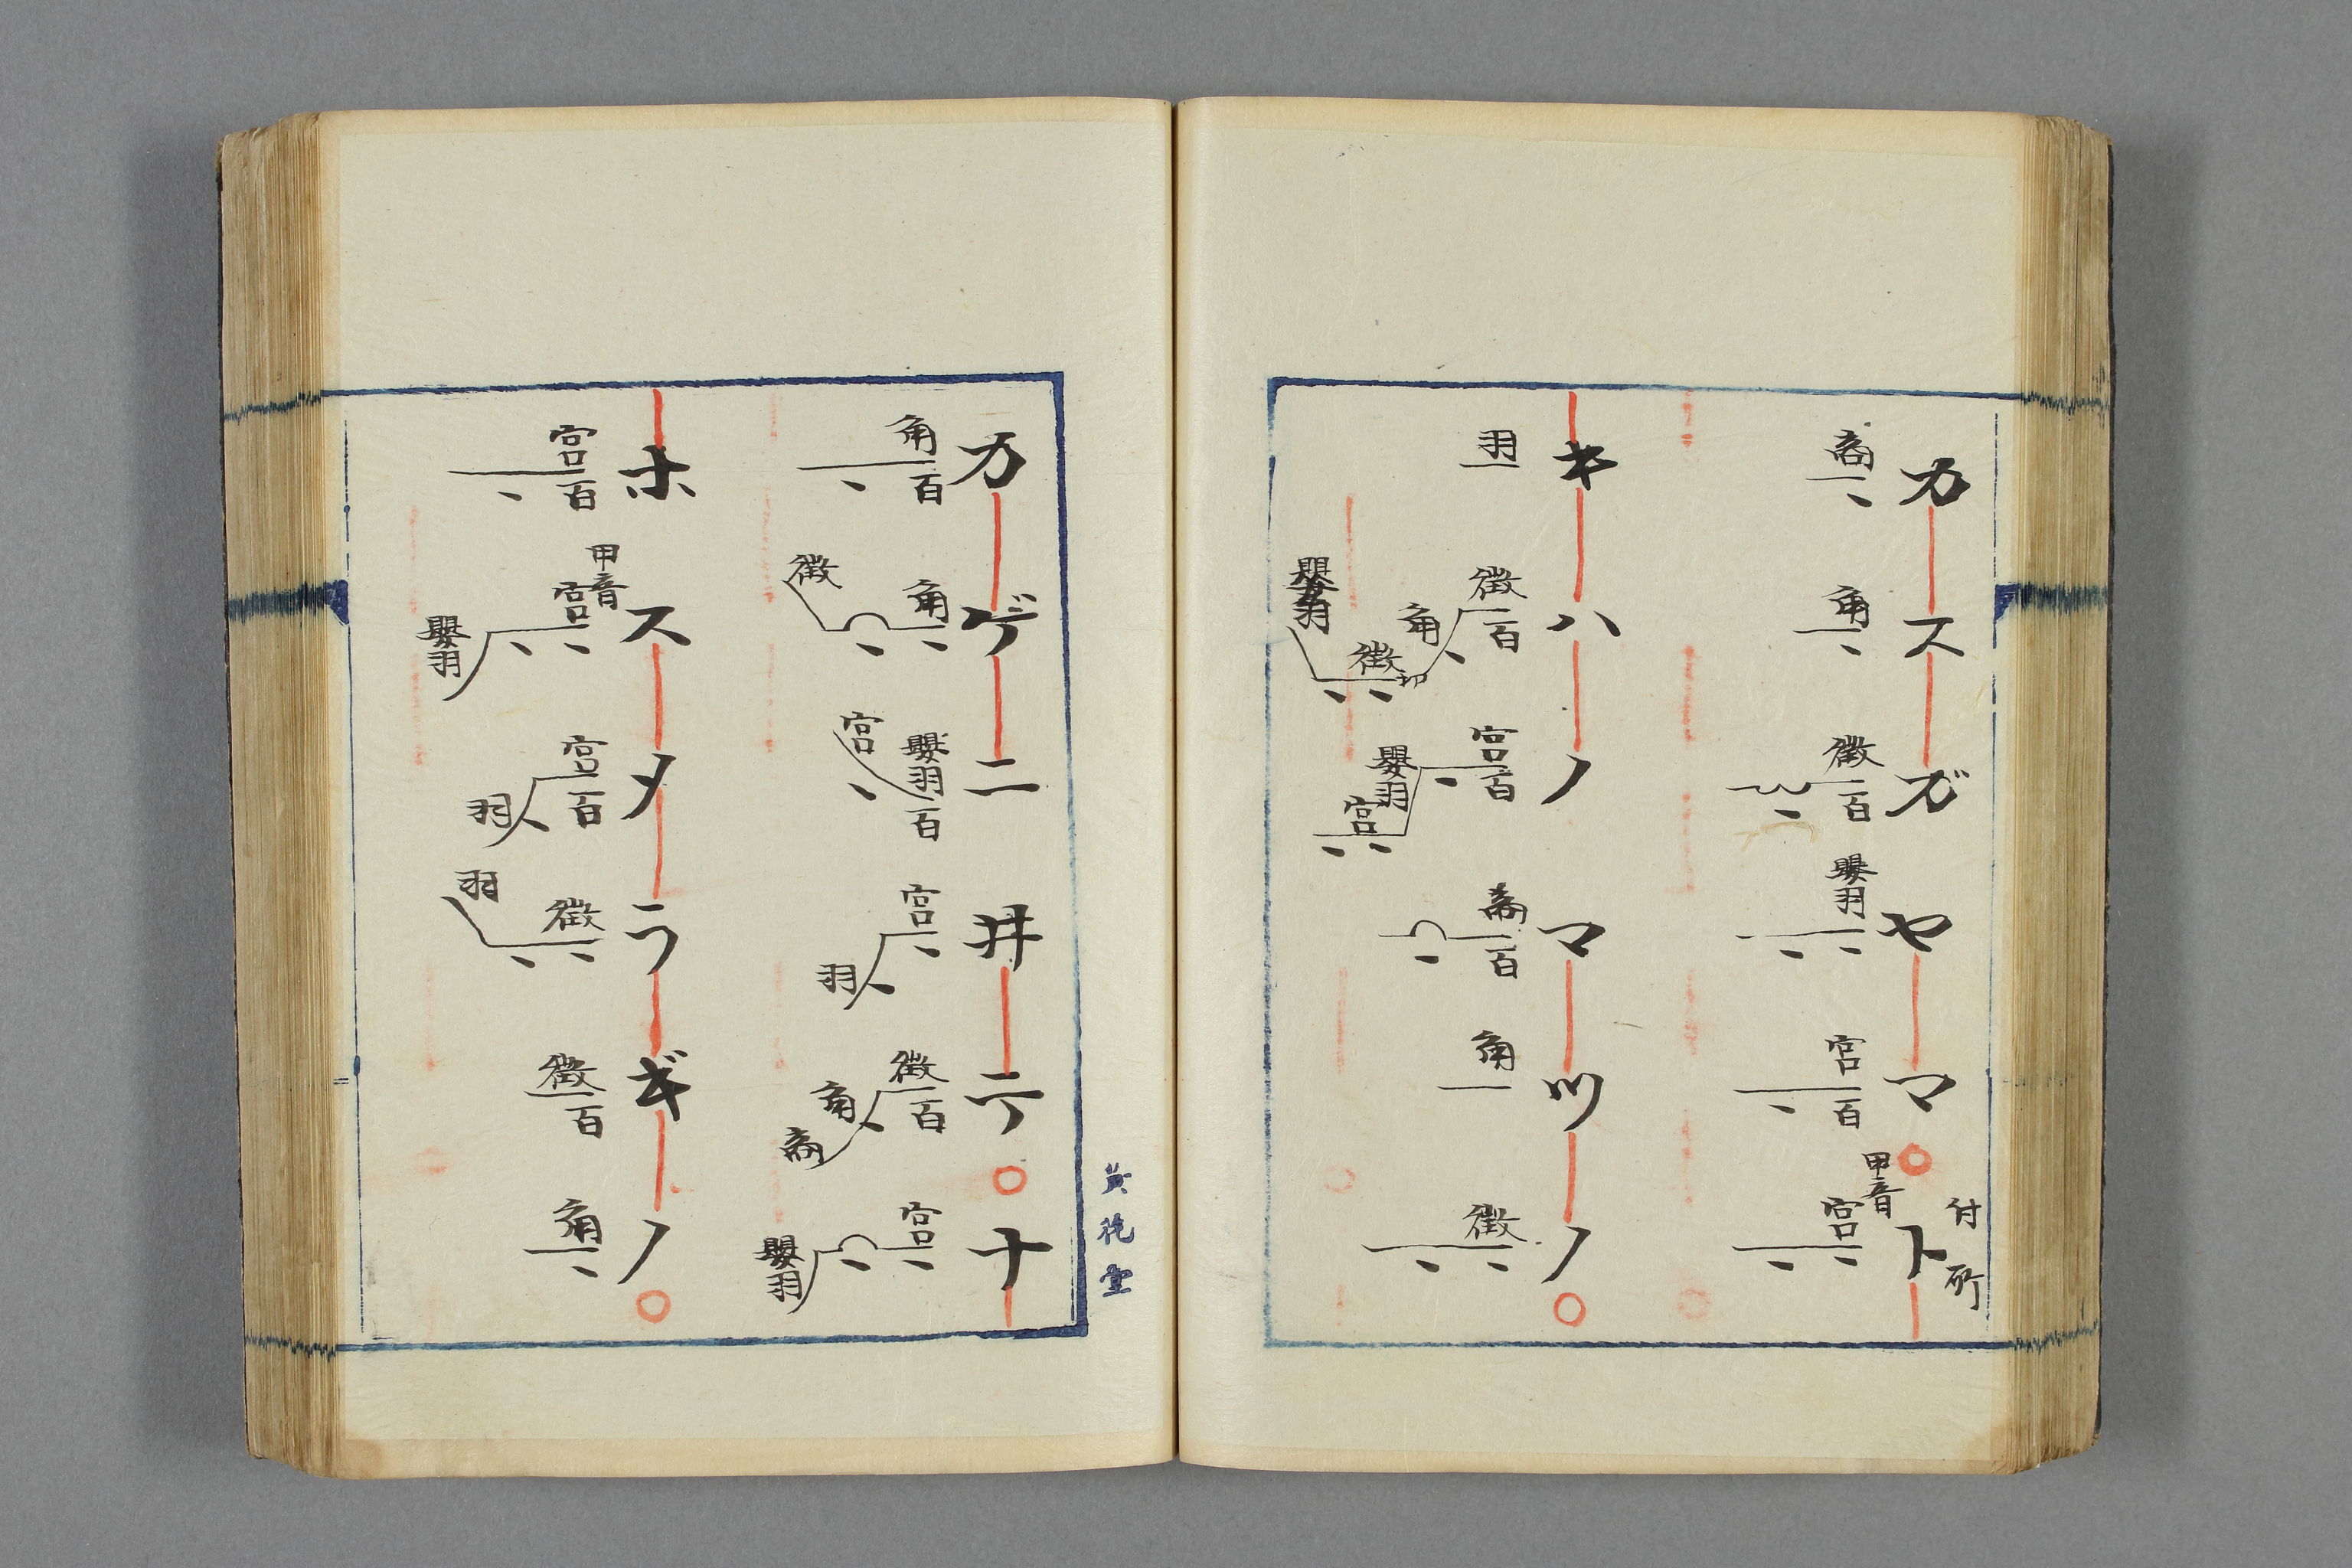 カスガヤマ○ト
付所
商 角 徴百 嬰羽 宮百 甲音宮
キハノマツノ○
羽 徴百角徴嬰羽 宮百嬰羽宮 商百 角 徴
カゲニ井テ○ナ
角百 角徴 嬰羽百宮 宮羽 徴百角商 宮嬰羽
ホスメラギノ○
宮百 甲音宮嬰羽 宮百羽 徴羽 徴百 角
堂